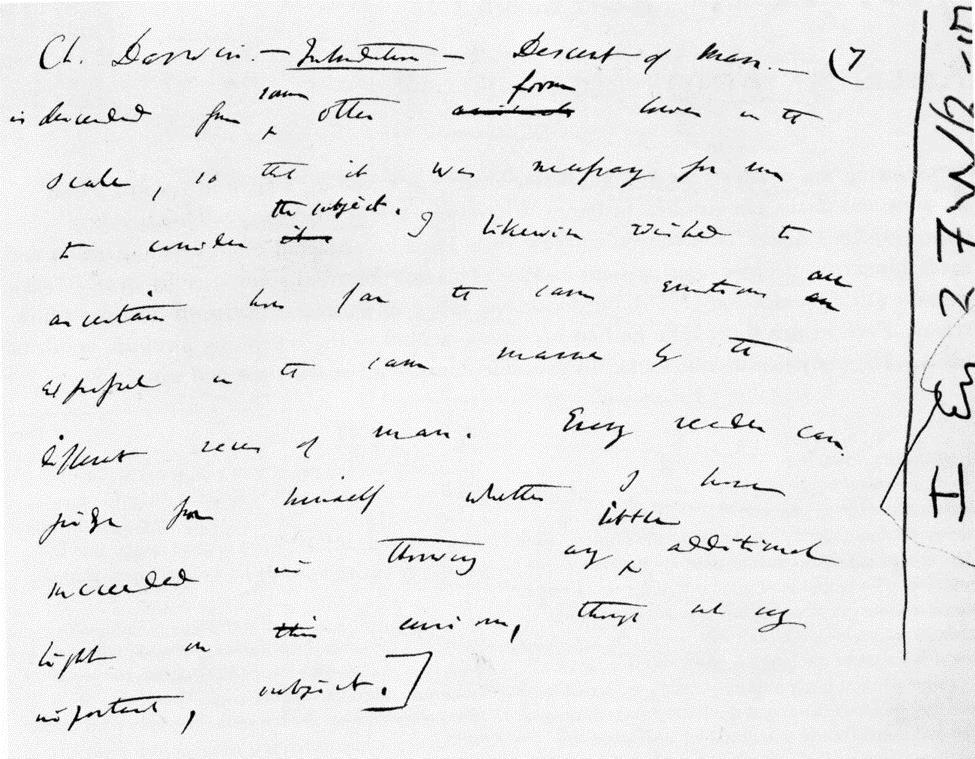 Ch. Darwin. — Introduction — Descent of Man. — (7
is descended from some other form lower in the
scale, so that it was necessary for me
to consider the subject. I likewise wished to
ascertain how far the same emotions are
expressed in the same manner by the
different races of man. Every reader can
judge for himself whether I have
succeeded in throwing any little additional
light on this curious, though not very
important, subject.]